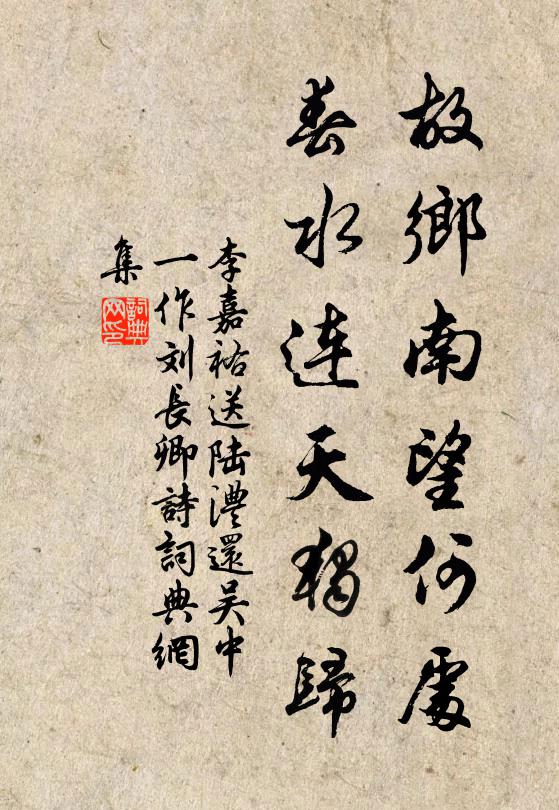 故鄉南望何處
春水連天獨歸
李嘉祐送陆澧還吴中
一作刘長卿詩詞典網
集
詞典网印